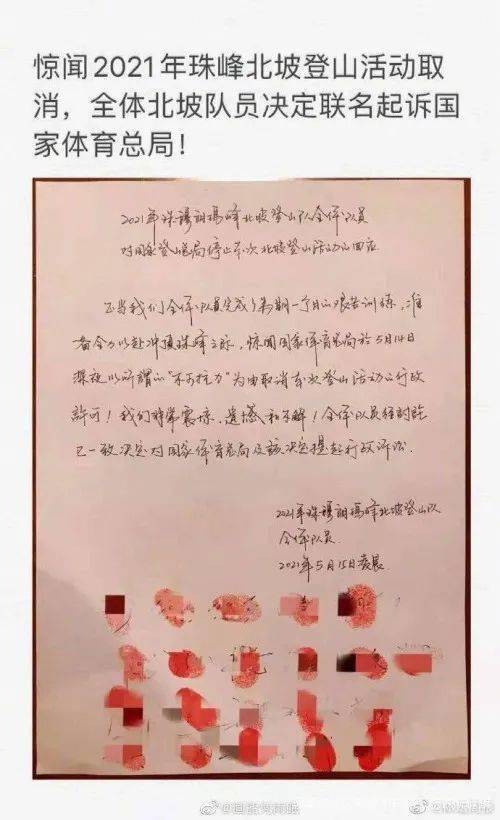 惊闻2021年珠峰北坡登山活动取
消，全体北坡队员决定联名起诉国
家体育总局！
2021年珠穆朗瑪峰北坡登山队全体队员
对国家登山總局停止本次北坡登山活动的回应
正当我们全体队员完成了為期一个月的艰苦训练，准
备全力以赴冲顶珠峰之际，惊闻国家体育總局於5月14日
深夜以所謂的“不可抗力”为由取消本次登山活动的行政
許可！我们非常震惊、遗憾和不解！全体队员经討論
已一致决定对国家体育總局及該决定提起行政訴讼.
2021年珠穆朗瑪峰北坡登山队
全体队员.
2021年5月15日凌晨